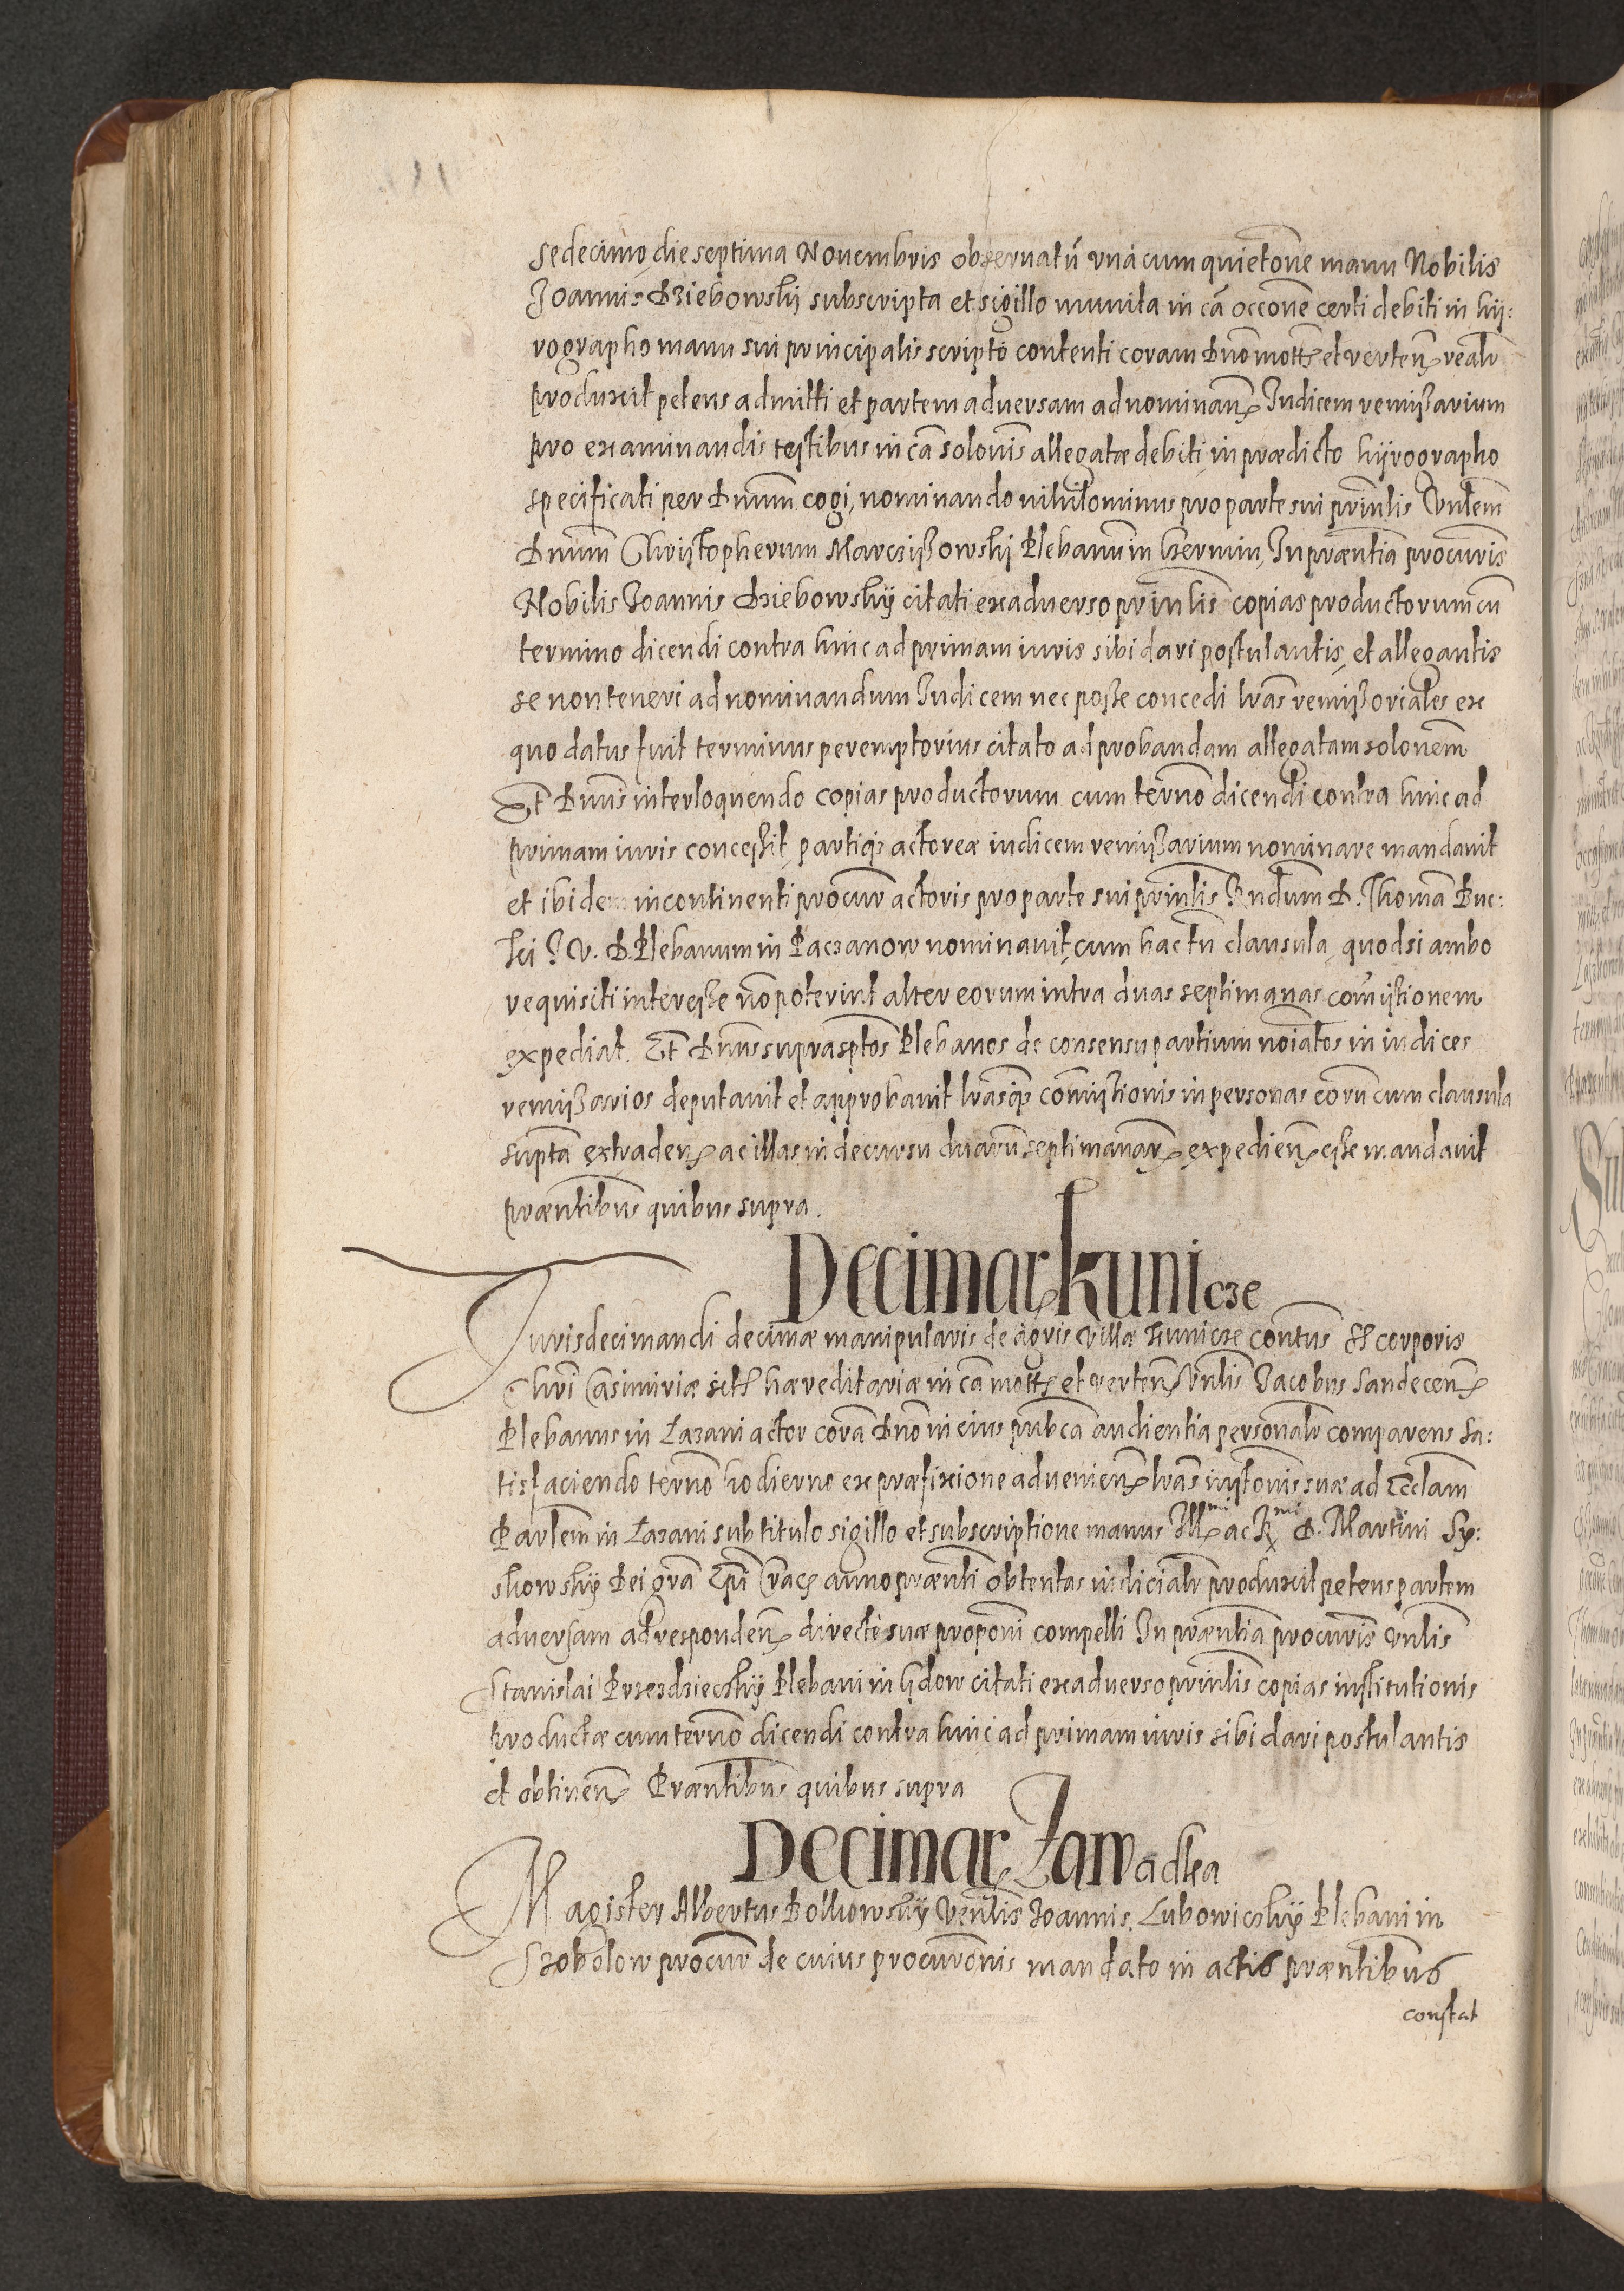 sedecimo, die septima Nouembris obseruatū vnà cum quietoñe manu Nobilis
Joannis Dziebowskij subscripta et sigillo munita in cã occoñe certi debiti in hij:
rographo manu sui principalis scripto contenti coram Dño mott et verteñ realr
produxit petens admitti et partem aduersam ad nominañ Judicem remissarium
pro examinandis testibus in cã soloñis allegatæ debiti in prædicto hijrographo
specificati per Dñum cogi, nominando nihilominus pro parte sui prinlis Vnlem
Dñum Christopherum Marczissowskj Plebanum in Czermin, In præntia procuris
Nobilis Joannis Dziebowskij citati ex aduerso prinlis copias productorum cū
termino dicendi contra hinc ad primam iuris sibi dari postulantis, et allegantis
se non teneri ad nominandum Judicem nec posse concedi lras remissoriales ex
quo datus fuit terminus peremptorius citato ad probandam allegatam solonem
Et Dñus interloquendo copias productorum cum terño dicendi contra hinc ad
primam iuris concessit, partiq; actoreæ iudicem remissarium nominare mandauit
et ibidem incontinenti procur actoris pro parte sui prinlis Rndum D. Thomã Buc:
ki J. V. D. Plebanum in Paczanow nominauit, cum hac tñ clausula, quod si ambo
requisiti interesse nõ poterint alter eorum intra duas septimanas comissionem
expediat. Et Dñus suprasptos Plebanos de consensu partium noiatos in iudices
remissarios deputauit et approbauit lrasq; comissionis in personas eorũ cum clausula
suptã extradeñ ac illas in decursu duarũ septimanar expedieñ esse mandauit
præntibus quibus supra.
Decimar Kunicze
Juris decimandi decimæ manipularis de agris villæ Kunicze contus SS corporis
Chri Casimiriæ sitæ hæreditariæ in cã mott et verteñ Vnlis Jacobus Sandeceñ
Plebanus in Lazani actor corã Dño in eius pubca audientia personalr comparens sa:
tisfaciendo terño hodierno ex præfixione aduenieñ lras instonis suæ ad Ecclam
Parlem in Lazani sub titulo sigillo et subscriptione manus Illmi ac Rmi D. Martini Sy:
szkowskij Dei gra Epi Crac anno prænti obtentas iudicialr produxit petens partem
aduersam ad respondeñ directè suæ proponi compelli In præntia procuris Vnlis
Stanislai Przezdzieczkij Plebani in Gdow citati ex aduerso prinlis copias institutionis
productæ cum terño dicendi contra hinc ad primam iuris sibi dari postulantis
et obtineñ Præntibus quibus supra
Decimar Zawadka
Magister Albertus Bolhowskij Venlis Joannis Lubowiczkij Plebani in
Skobolow procur de cuius procuronis mandato in actis præntibus
constat